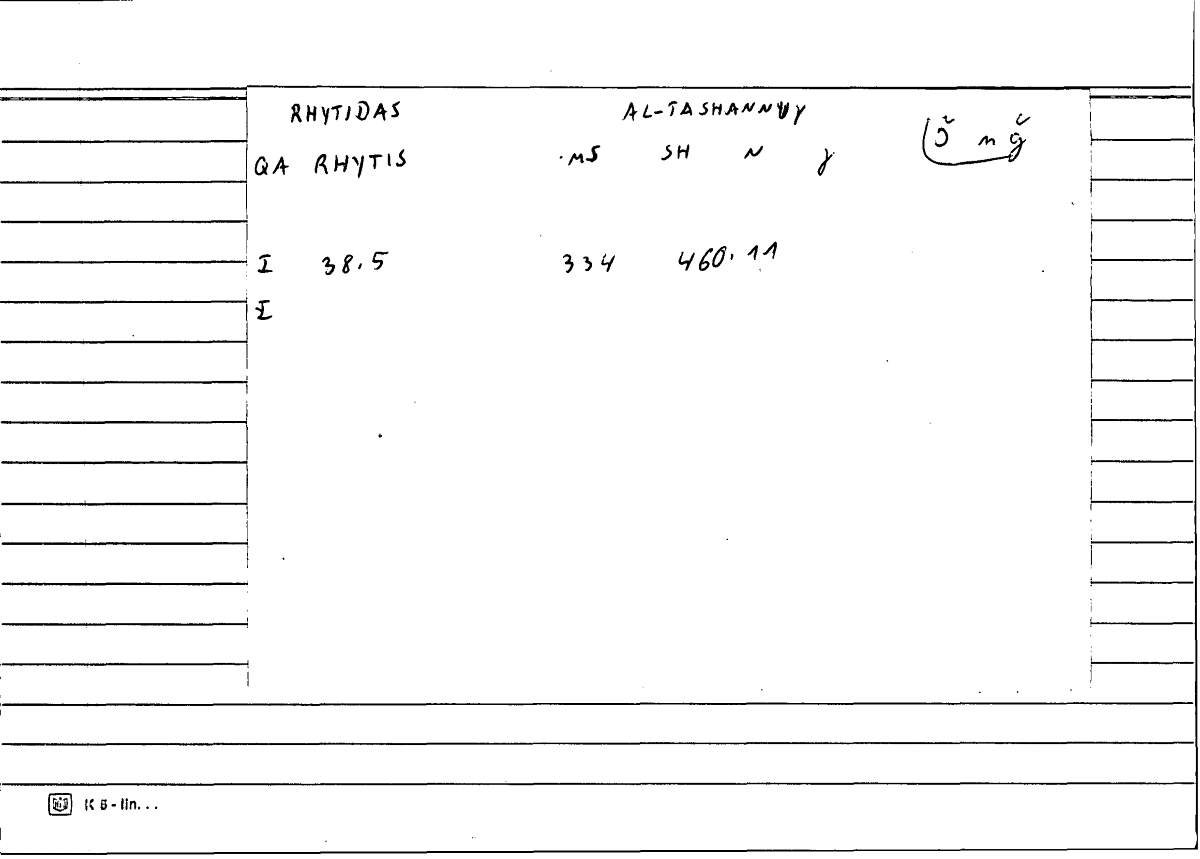 RHYTIDAS AL-TASHANNUY
QA RHYTIS MS SH N Y
I 38.5 334 460.11
I
K 6-lin...